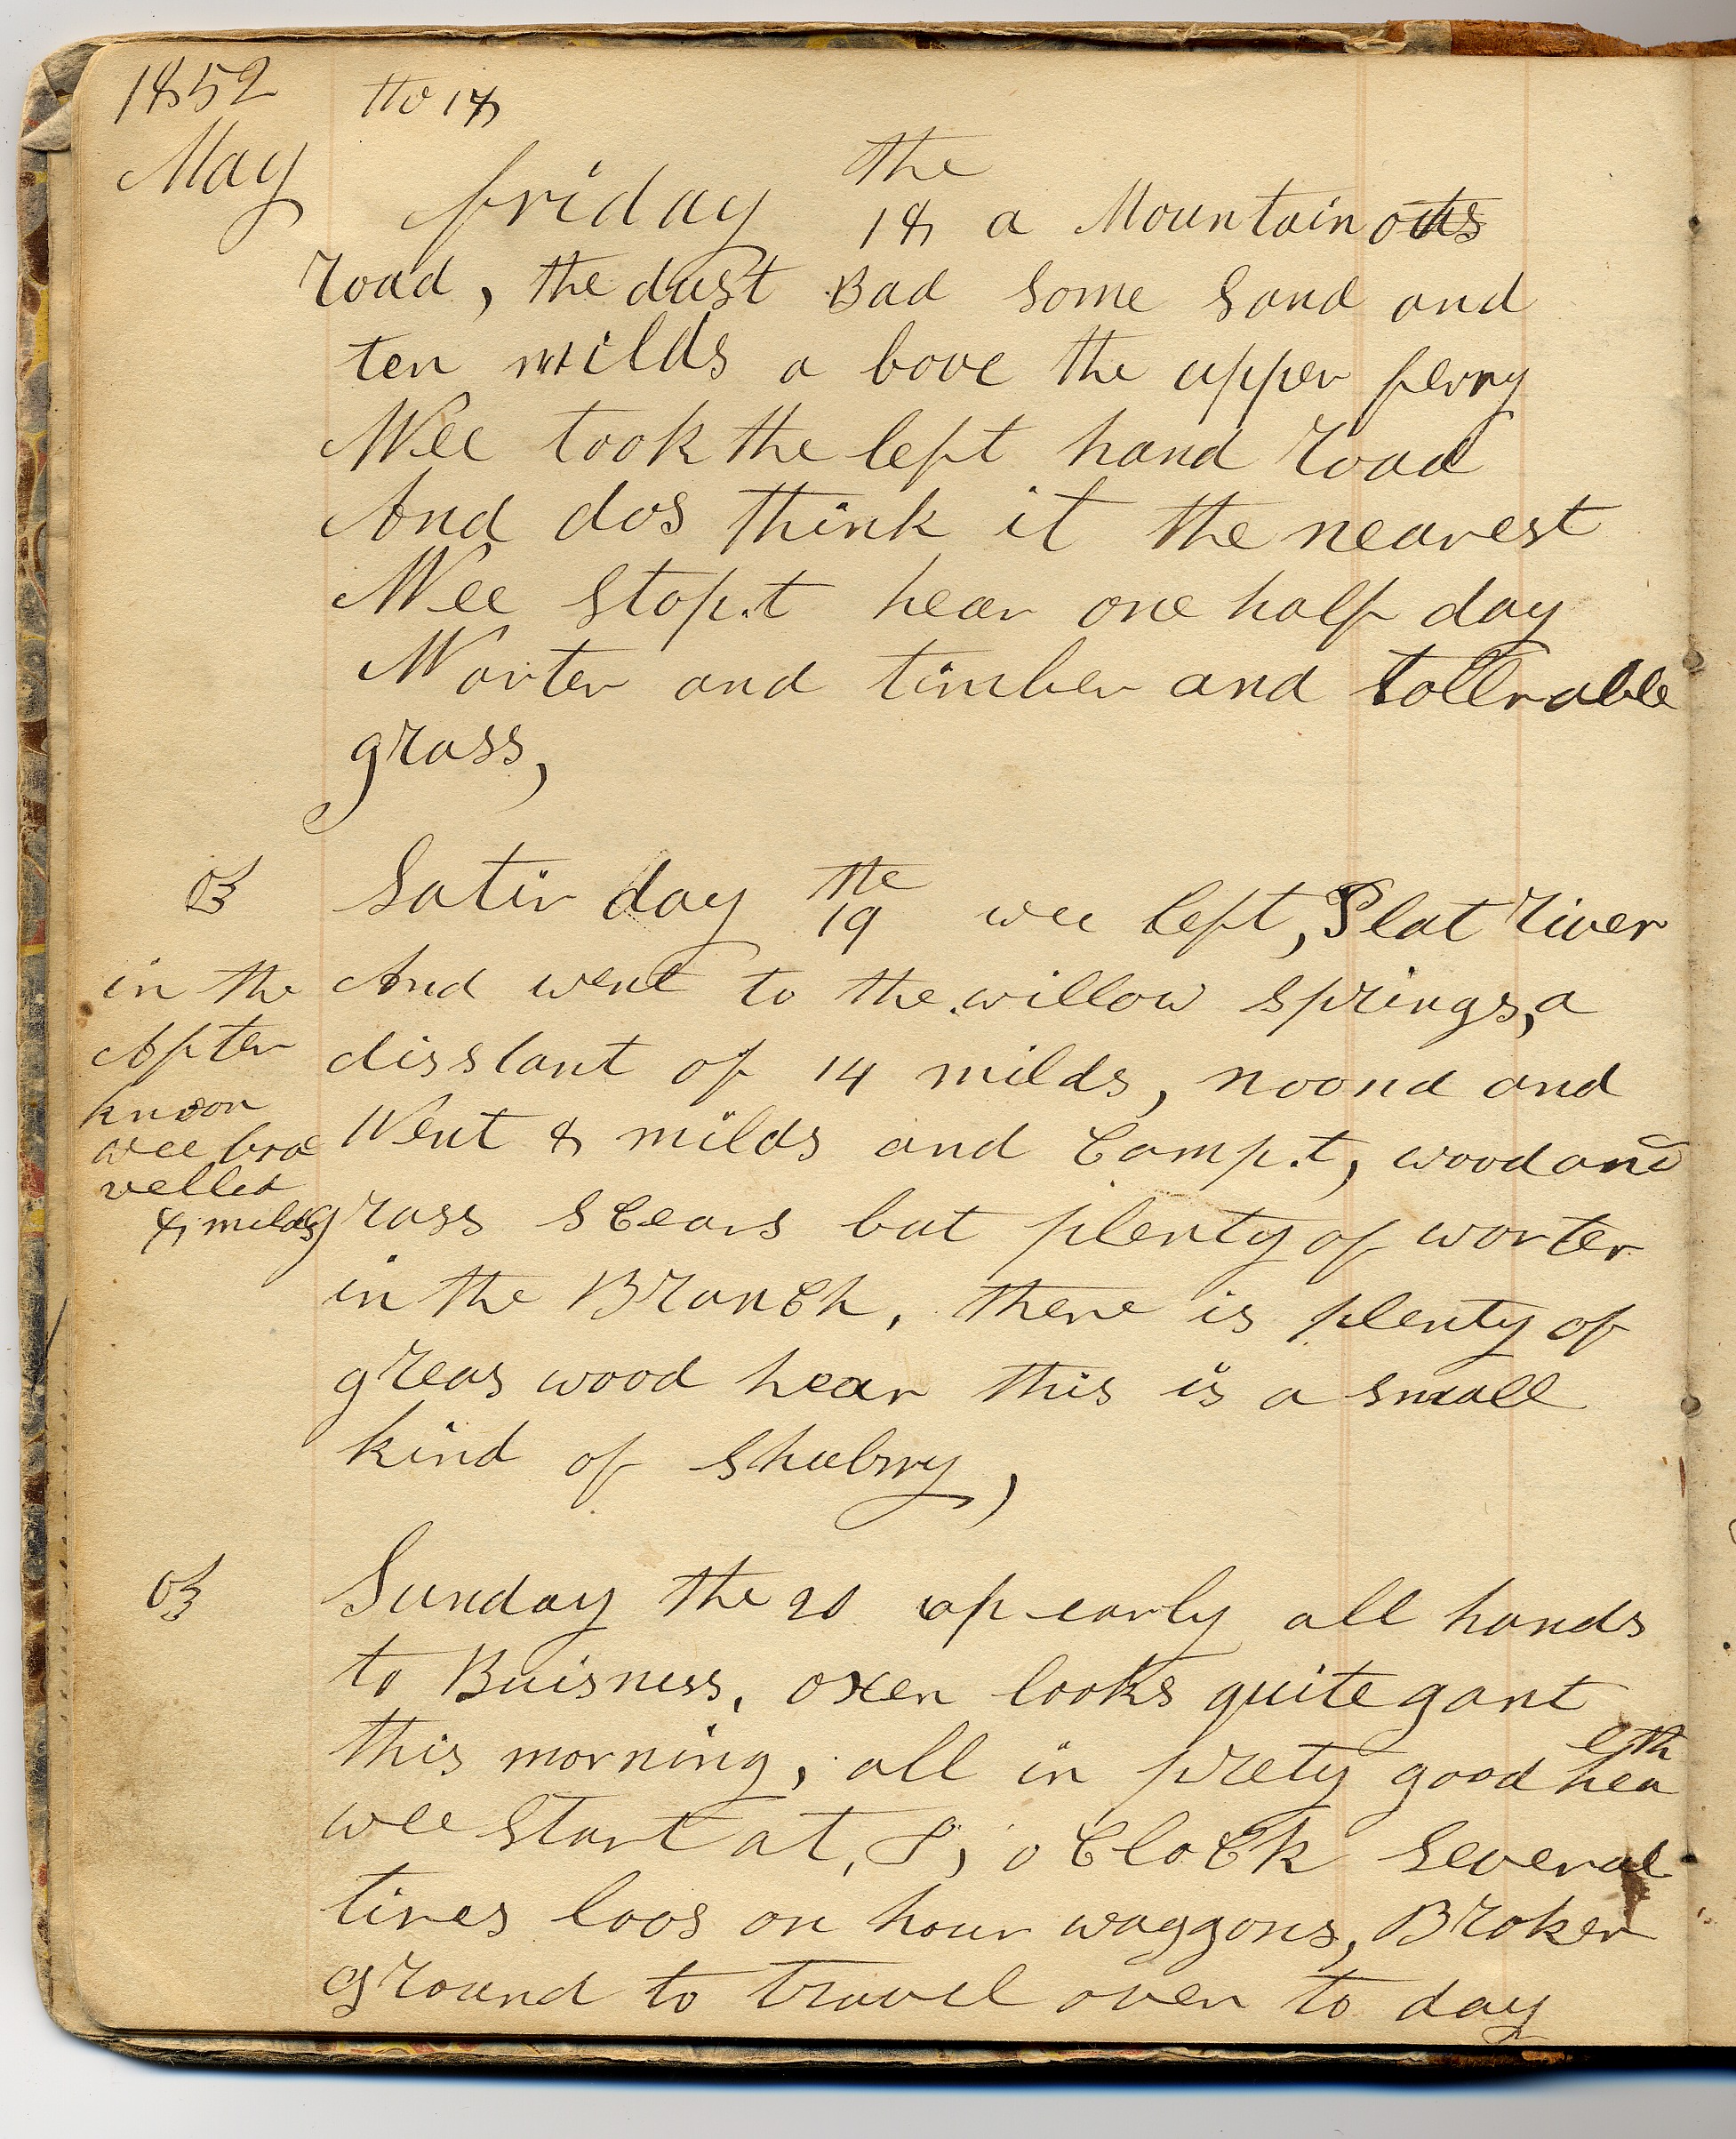 1852 the 18
May friday the 18 a Mountainous
road, the dust Bad some sand and
ten milds a bove the upper ferry
Wee took the left hand road
And dos think it the nearest
Wee stop.t hear one half day
Worter and timber and tollrable
grass,
Satir day the 19 wee left, Plat river
And went to the willow springs, a
disstant of 14 milds, noond and
Went 8 milds and Camp.t, wood and
grass scears but plenty of worter
in the Branch, there is plenty of
greas wood hear this is a small
kind of shubrry,
in the
After
knoon
wee tra
velled
8, milds
Sunday the 20 up early all hands
to Buisness, oxen looks quite gant
this morning, all in prety good hea
elth
wee start at, 8, o Clock several
tires loos on hour waggons, Broken
ground to travel over to day